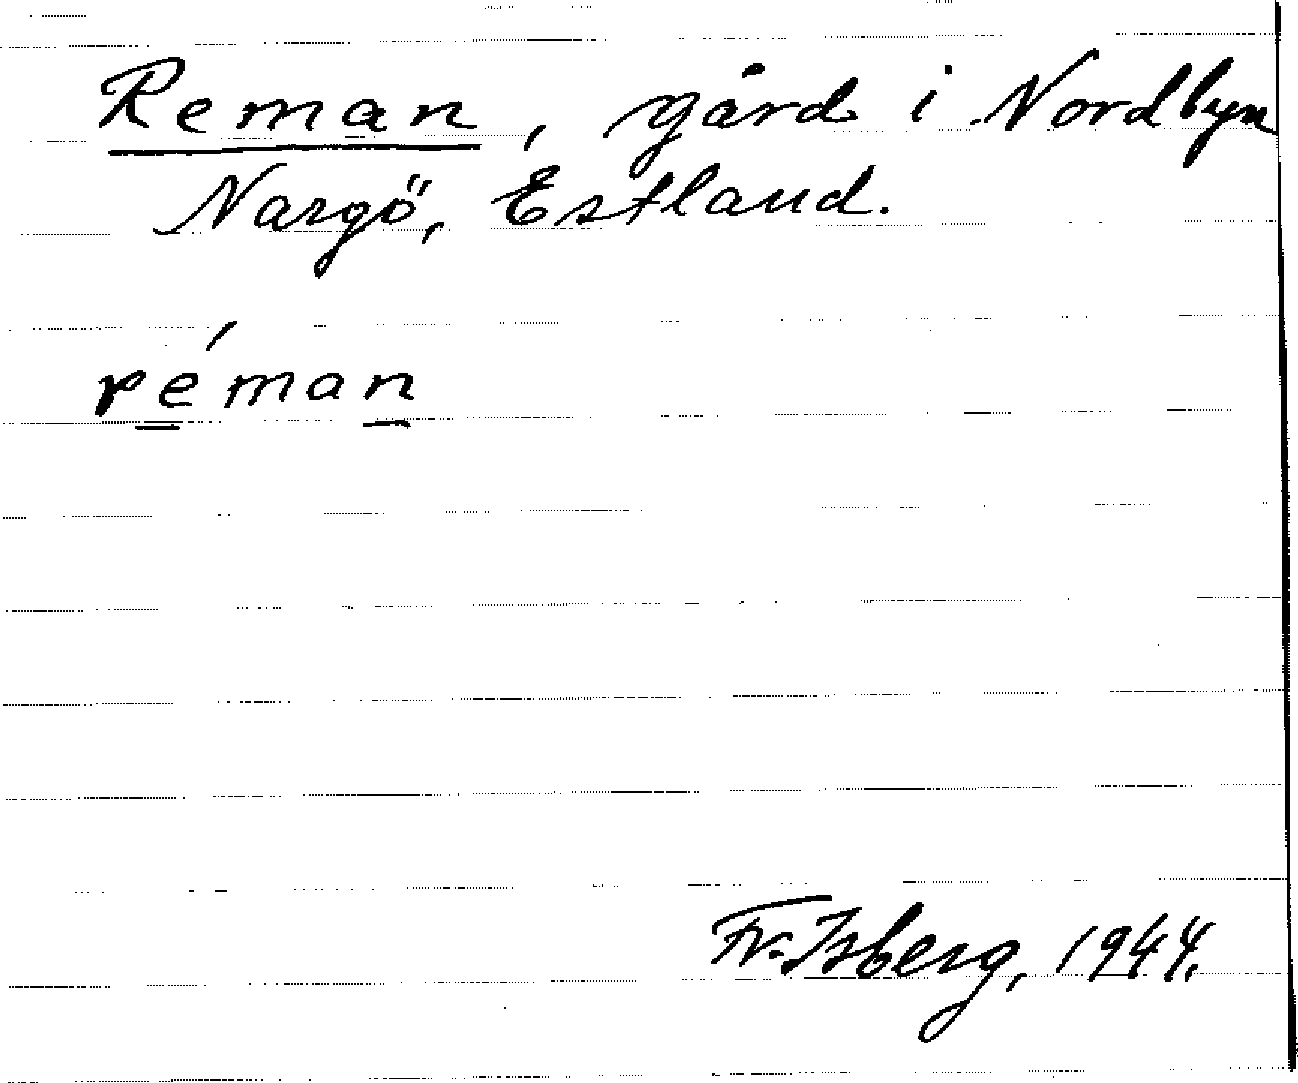 Reman, gård i Nordbyn
Nargö, Estland.
réman
Fr. Isberg, 1944.